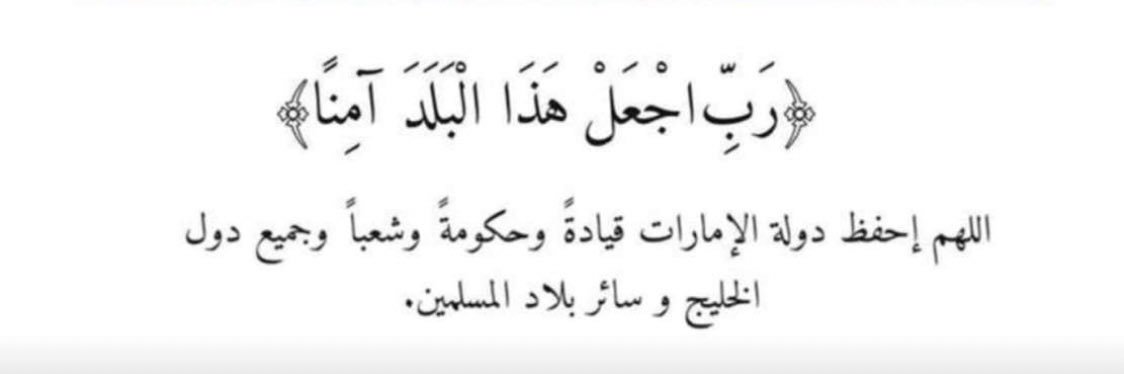 ﴿رَبِّ اجْعَلْ هَذَا الْبَلَدَ آمِنًا﴾
اللهم إحفظ دولة الإمارات قيادةً وحكومةً وشعباً وجميع دول
الخليج و سائر بلاد المسلمين.